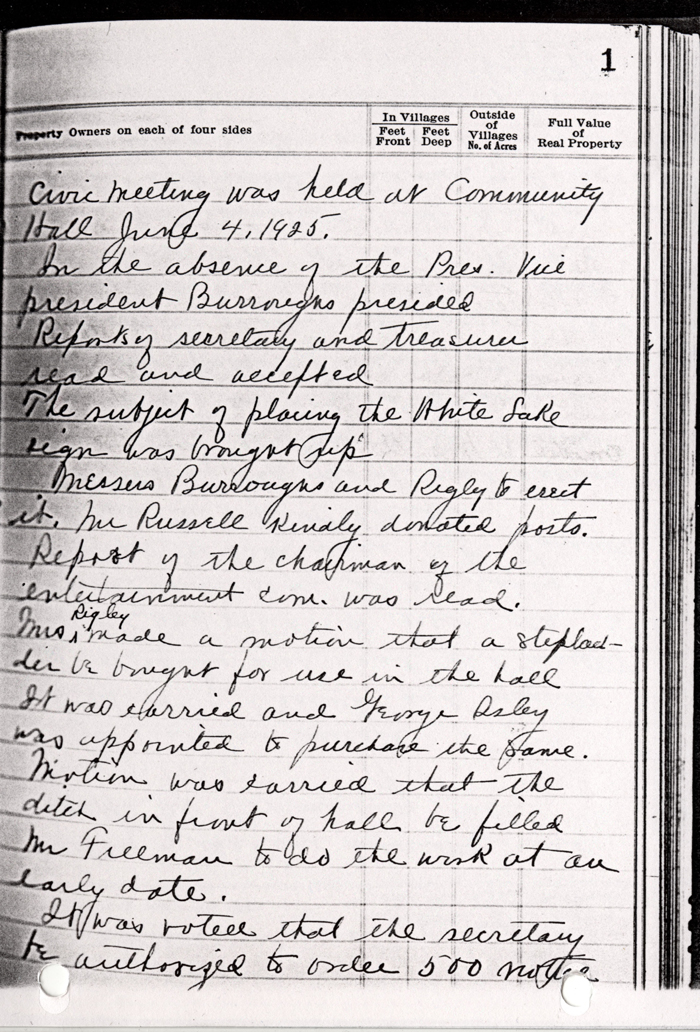 1
Property Owners on each of four sides
In Villages
Feet Front
Feet Deep
Outside of Villages No. of Acres
Full Value of Real Property
Civic Meeting was held at Community
Hall June 4, 1925.
In the absence of the Pres. Vice
president Burroughs presided
Reports of secretary and treasurer
read and accepted
The subject of placing the White Lake
sign was brought up
Messers Burroughs and Rigly to erect
it. Mr Russell Kindly donated posts.
Report of the chairman of the
entertainment com. was read.
Rigley
Mrs. made a motion that a steplad-
der be bought for use in the hall
It was carried and George
was appointed to purchase the same.
Motion was carried that the
ditch in front of hall be filled
Mr Freeman to do the work at an
early date.
It was voted that the secretary
be authorized to order 500 notice